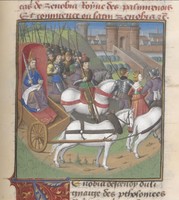 cas de zenobia royne des palmirenois
Et commence ou latin zenobia &c.
Enobia descendy du li
gnaige des ptholomees